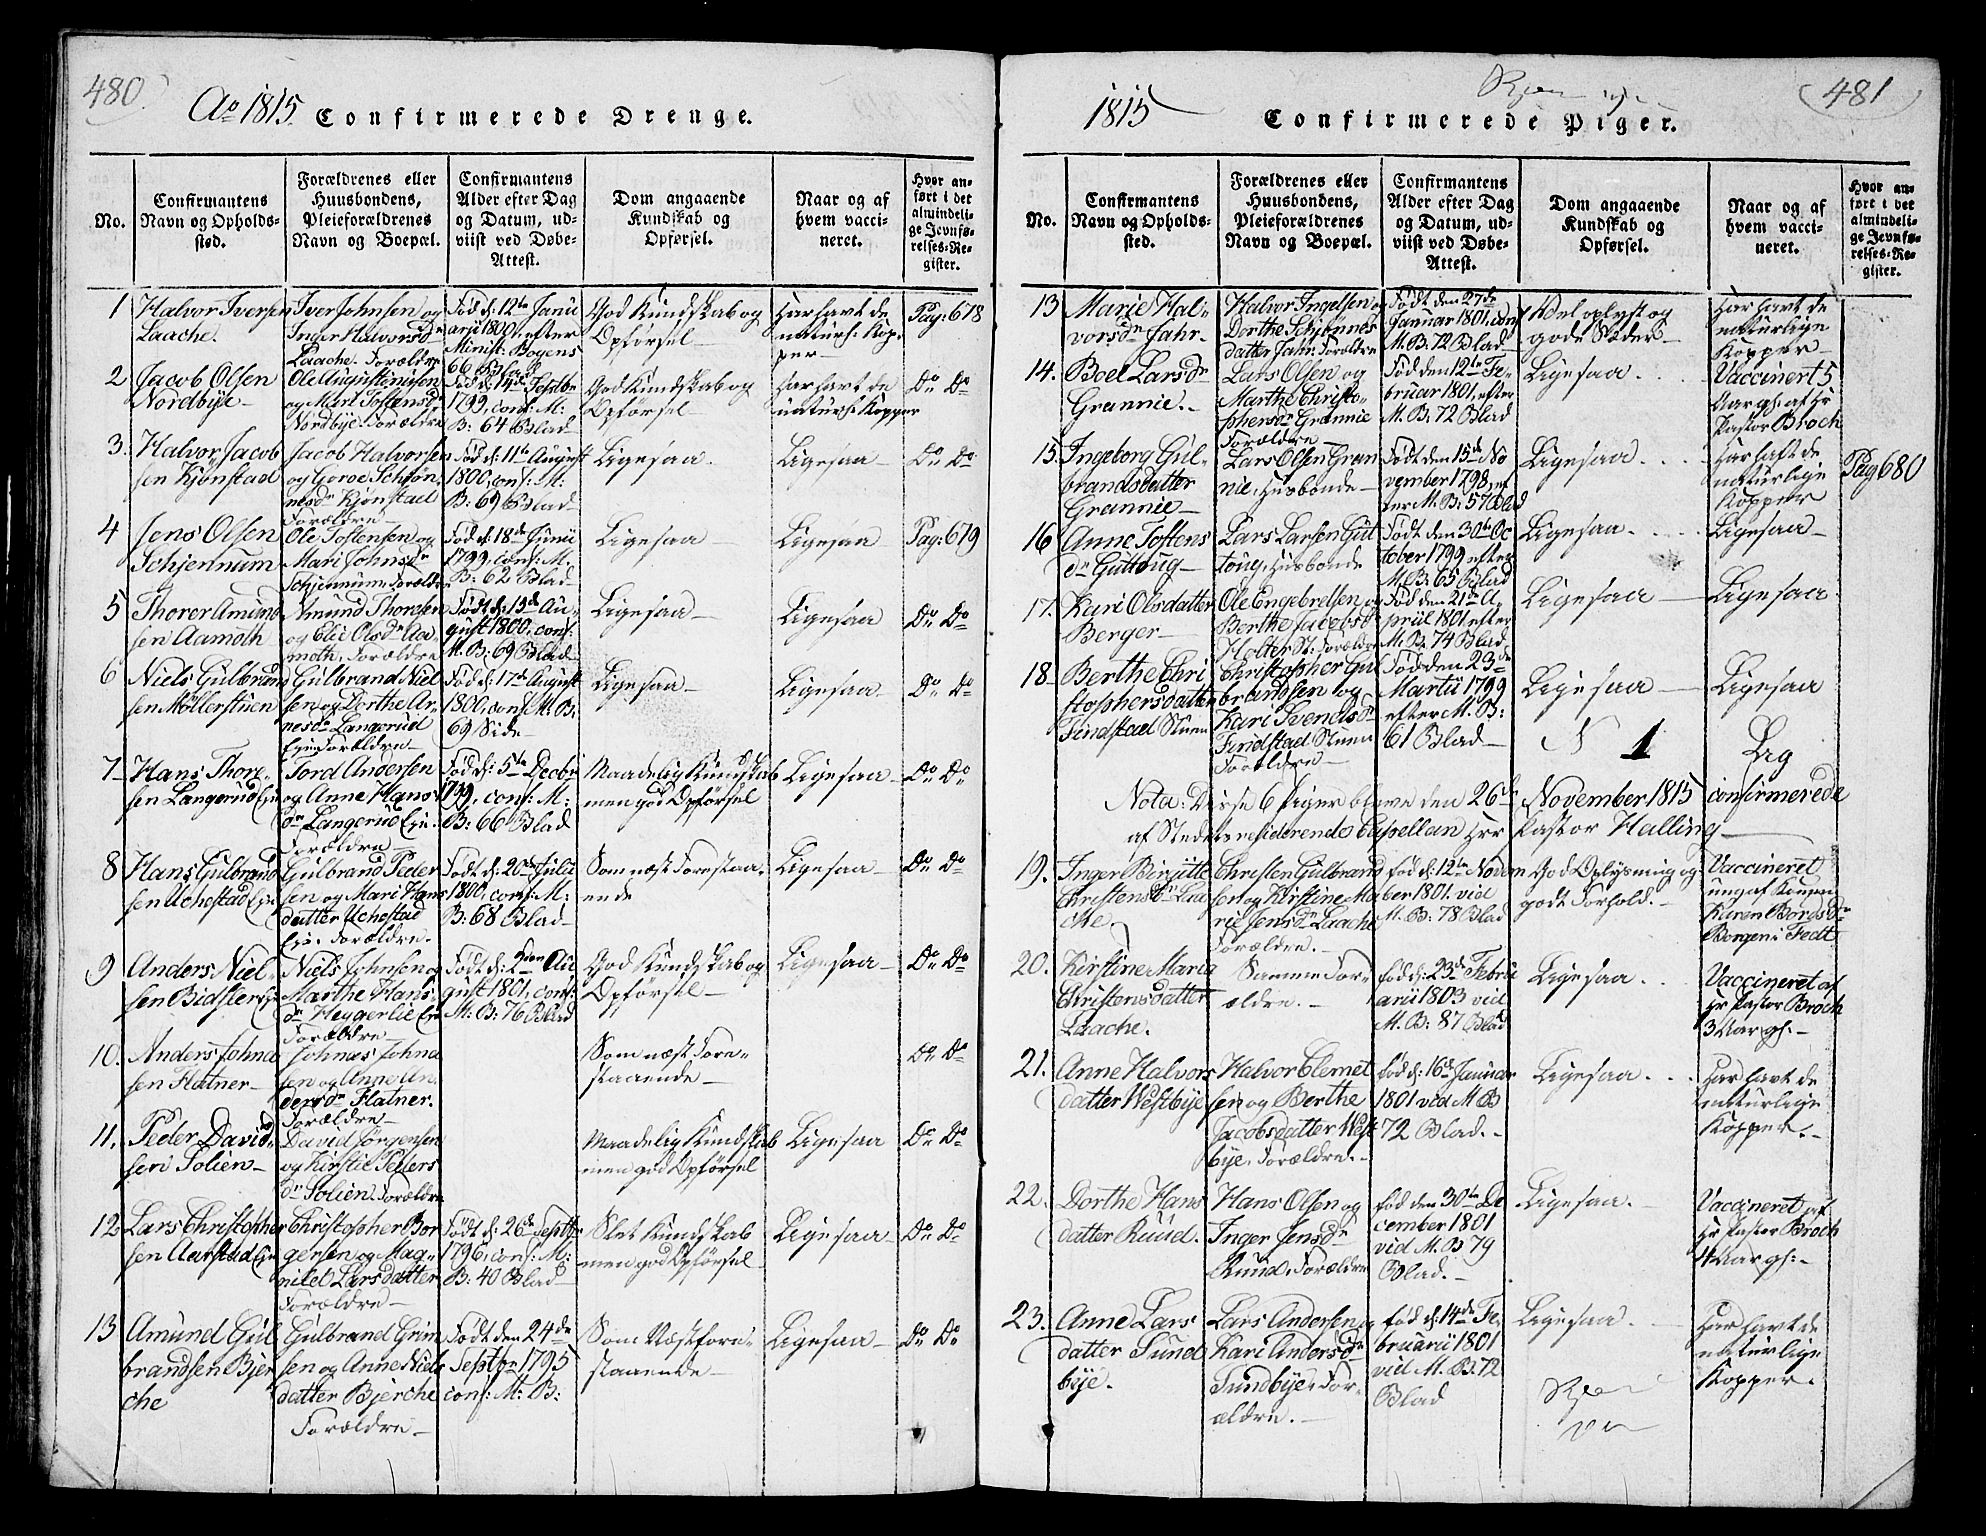 480.
Ao 1815. Confirmerede Drenge.
No.
Confirmantens
Navn og Opholds-
sted.
Forældrenes eller
Huusbondens,
Pleieforældrenes
Navn og Boepæl.
Confirmantens
Alder efter Dag
og Datum, ud-
viist ved Døbe-
Attest.
Dom angaaende
Kundskab og
Opførsel.
Naar og af
hvem vacci-
neret.
Hvor an-
ført i det
almindeli-
ge Jevnfø-
relses-Re-
gister.
1
Halvor Iversen
Laache.
Iver Johnsen og
Inger Halvorsdr
Laache. Forældre
Fød d: 12te Janu
arii 1800 efter
Minist: Bogens
66 Blad
God Kundskab og
Opførsel
Har havt de
naturl: Kop-
per
Pag: 678
2
Jacob Olsen
Nordbye
Ole Augustenusen
og Mari Toftensdr
Nordbye. Forældre
Fød d: 14de Septbr
1799, conf: M:
B: 64 Blad
God Kundskab og
Opførsel
Har havt de
naturl: Kopper
Do Do
3.
Halvor Jacob
sen Kjønstad
Jacob Halvorsen
og Goroe Schøn-
nesdr Kjønstad
Forældre
Fød d: 11te August
1800, conf: M:
B: 69 Blad
Ligesaa.
Ligesaa
Do Do
4
Jens Olsen
Schjennum
Ole Toftensen og
Mari Johnsdr
Schjennum. Forældre
Fød d: 18de Junii
1799, conf: M.
B: 62 Blad
Ligesaa
Ligesaa
Pag: 679
5
Thorer Amund
sen Aamoth
Amund Thorersen
og Elie Olsdr Aa-
moth. Forældre
Født d: 13de Au-
gust 1800, conf:
M. B: 69 Blad
Ligesaa
Ligesaa
Do Do
6
Niels Gulbrand
sen Møllerstuen
Gulbrand Niel
sen og Dorthe Ar-
nesdr Langerud
Eje Forældre
Fød d: 17de August
1800, conf: M: B:
69 Side
Ligesaa
Ligesaa
Do Do
7
Hans Thore-
sen Langerud Eje
Tord Andersen
og Anne Hans-
dr Langerud Eje.
Forældre
Fød d: 5te Decbr
1799, conf: M:
B: 66 Blad
Maadelig Kundskab
men god Opførsel
Ligesaa
Do Do
8
Hans Gulbrand
sen Uchestad Eje
Gulbrand Peder
sen og Mari Hans
datter Uchestad
Eje. Forældre.
Født d: 20de Julii
1800, conf: M:
B: 68 Blad
Som næst Forestaa-
ende
Ligesaa
Do Do
9
Anders Niel-
sen Bidsler Eje
Niels Johnsen og
Marthe Hans-
dr Heggerlie Eje
Forældre
Født d: 2den Au
gust 1801, conf:
M: B: 76 Blad
God Kundskab og
Opførsel
Ligesaa
Do Do
10.
Anders Johna
sen Flatner
Johnas Johna
sen og Anne An
dersdr Flatner.
Forældre
Som næst Fore-
staaende
Do Do
11.
Peder David-
sen Solien
David Jørgensen
og Kirstie Peders
dr Solien. Forældre
Maadelig Kundskab
men god Opførsel
Ligesaa
Do Do
12
Lars Christopher
sen Aarstad Eje
Christopher Bor
gersen og Mag-
nild Larsdatter
Forældre
Født d: 26de Septbr
1796, conf: M:
B: 40 Blad
Slet Kundskab
men god Opførsel
Ligesaa
Do Do
13
Amund Gul
brandsen Bjer
che
Gulbrand Grim
sen og Anne Niels
datter Bjerche
Forældre
Født den 24de
Septbr 1795
conf: M: B:
Som Næstfore-
staaende
Ligesaa
Do Do
481
1815 Confirmerede Piger.
No.
Confirmantens
Navn og Opholds-
sted.
Forældrenes eller
Huusbondens,
Pleieforældrenes
Navn og Boepæl.
Confirmantens
Alder efter Dag
og Datum, ud-
viist ved Døbe-
Attest.
Dom angaaende
Kundskab og
Opførsel.
Naar og af
hvem vacci-
neret.
Hvor an-
ført i det
almindeli-
ge Jevnfø-
relses-Re-
gister.
13
Marie Hal-
vorsdr Jahr.
Halvor Ingelsen og
Dorthe Schjønnes
datter Jahr. Forældre
Født den 27de
Januar 1801, conf
M. B. 72 Blad
Vel oplyst og
gode Sæder
Har havt de
naturlige
Kopper
14.
Boel Larsdr
Grønnie.
Lars Olsen og
Marthe Christo-
phersdr Grønnie
Forældre
Fød den 12te Fe-
bruar 1801, efter
M. B: 72 Blad
Ligesaa
Vaccinert 5
Aar gl: af Hr
Pastor Broch
15.
Ingeborg Gul-
brandsdatter
Grønnie
Lars Olsen Grøn
nie, Husbonde
Født den 15de No
vember 1798, ef
ter M. B: 57 Blad
Ligesaa
Har haft de
naturlige
Kopper
Pag 680
16
Anne Toftens
dr Guttoug
Lars Larsen Gut
toug, Husbonde
Født den 30te Oc
tober 1799 efter
M. B. 65 Blad
Ligesaa
Ligesaa
17.
Kari Olsdatter
Berger
Ole Engebretsen og
Berthe Jacobsdr
Holter St: Forældre
Fød den 21de A-
priil 1801 efter
M. B. 74 Blad
Ligesaa
Ligesaa.
18
Berthe Chri
stophersdatter
Findstad Stuen
Christopher Gul
brandsen og
Kari Svendsdr
Findstad Stuen
Forældre
Fød den 23de
Martii 1799
efter M. B:
61 Blad
Ligesaa
Ligesaa
N 1
Nota: Disse 6 Piger bleve den 26de November 1815 confirmerede
af Stedets residerende Capellan Herr Pastor Halling
19.
Inger Birgitte
Christensdr Laa
che.
Christen Gulbrand
sen og Kirstine Ma
rie Jensdr Laache
Forældre.
Fød d: 12te Novem
ber 1801. vid
M. B: 78 Blad
God Oplysning og
godt Forhold.
Vaccineret
ung af Konen
Karen Bordsdr
Borgen i Fedt
20.
Kirstine Maria
Christensdatter
Laache.
Samme For-
ældre.
fød d: 23de Febru
arii 1803 vid
M. B: 87 Blad
Ligesaa.
Vaccineret af
Hr Pastor Broch
3 Aar gl:
21.
Anne Halvors
datter Westbye
Halvor Clemet
sen og Berthe
Jacobsdatter West
bye. Forældre.
fød d: 16de Januar
1801 vid M B
72 Blad.
Ligesaa.
Har havt de
naturlige
Kopper.
22.
Dorthe Hans
datter Ruud.
Hans Olsen og
Inger Jensdr
Ruud. Forældre
fød den 30te De
cember 1801
vid M. B 79
Blad.
Ligesaa.
Vaccineret af
Hr Pastor Broch
4 Aar gl:
23.
Anne Lars
datter Sund
bye.
Lars Andersen og
Kari Andersdr
Sundbye. For-
ældre.
fød d: 14de Fe-
bruarii 1801
vid M. B. 72
Blad
Ligesaa.
Har havt de
naturlige
Kopper.